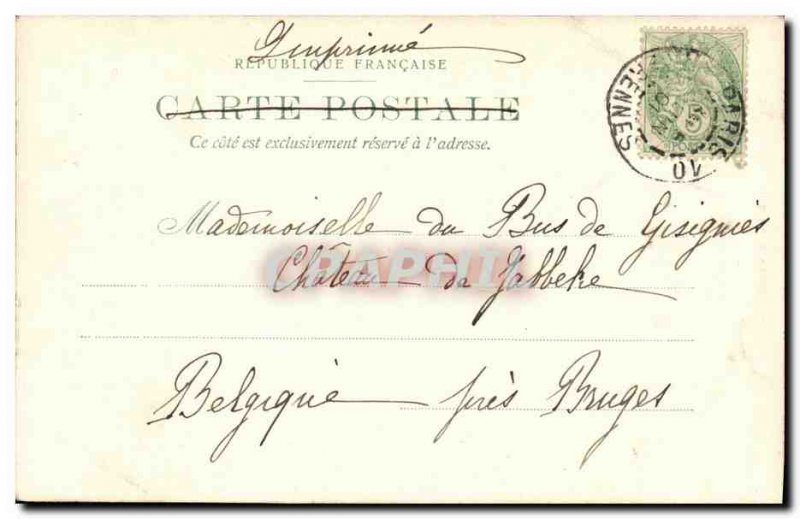 Imprimé
RÉPUBLIQUE FRANÇAISE
CARTE POSTALE
Ce côté est exclusivement réservé à l'adresse.
Mademoiselle du Bus de Gisignies
Château de Jabbeke
Belgique près Bruges